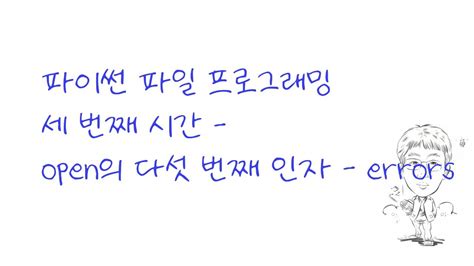 파이썬 파일 프로그래밍
세 번째 시간 -
open의 다섯 번째 인자 - errors